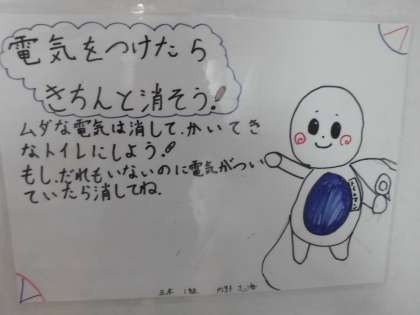 電気をつけたら
きちんと消そう!
ムダな電気は消して、かいてき
なトイレにしよう!
もし、だれもいないのに電気がつい
ていたら消してね.